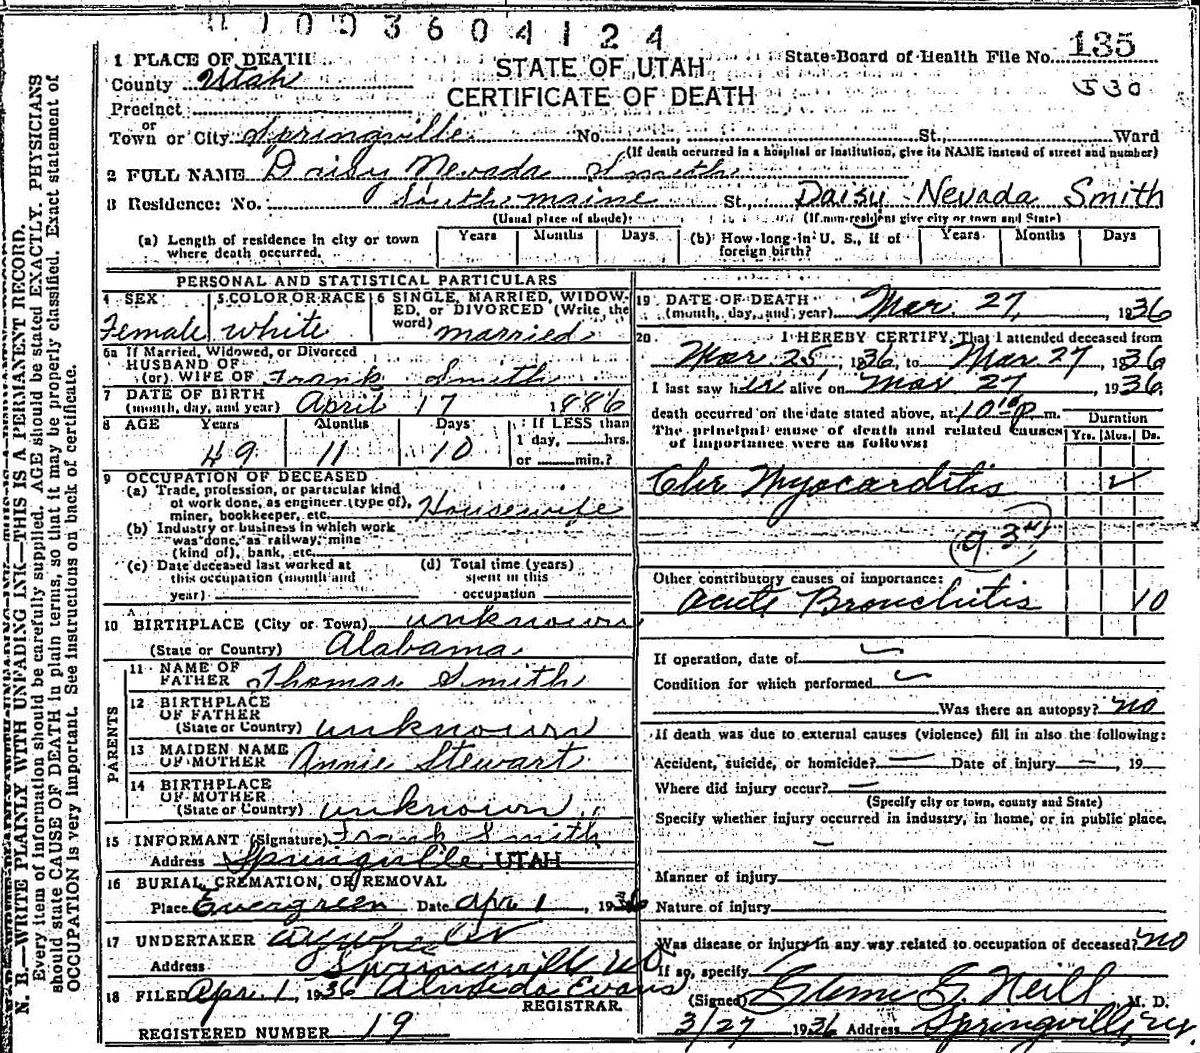 1003604124
1 PLACE OF DEATH
STATE OF UTAH
State Board of Health File No. 135
County Utah
530
CERTIFICATE OF DEATH
Precinct
or
Town or City Springville No. St. Ward
(If death occurred in a hospital or institution, give its NAME instead of street and number)
2 FULL NAME Daisy Nevada Smith
3 Residence: No. South maine St., Daisy Nevada Smith
(Usual place of abode) (If non-resident give city or town and State)
(a) Length of residence in city or town where death occurred. Years Months Days (b) How long in U. S., if of foreign birth? Years Months Days
PERSONAL AND STATISTICAL PARTICULARS
4 SEX Female
5 COLOR OR RACE white
6 SINGLE, MARRIED, WIDOWED, or DIVORCED (Write the word) married
6a If Married, Widowed, or Divorced
HUSBAND OF
(or) WIFE OF Frank Smith
7 DATE OF BIRTH
(month, day, and year) April 17 1886
8 AGE Years 49 Months 11 Days 10 If LESS than
1 day, hrs.
or min.?
9 OCCUPATION OF DECEASED
(a) Trade, profession, or particular kind
of work done, as engineer (type of),
miner, bookkeeper, etc. Housewife
(b) Industry or business in which work
was done, as railway, mine
(kind of), bank, etc.
(c) Date deceased last worked at
this occupation (month and
year)
(d) Total time (years)
spent in this
occupation
10 BIRTHPLACE (City or Town) unknown
(State or Country) Alabama
PARENTS
11 NAME OF
FATHER Thomas Smith
12 BIRTHPLACE
OF FATHER
(State or Country) unknown
13 MAIDEN NAME
OF MOTHER Annie Stewart
14 BIRTHPLACE
OF MOTHER
(State or Country) unknown
15 INFORMANT (Signature) Frank Smith
Address Springville, UTAH
16 BURIAL, CREMATION, OR REMOVAL
Place Evergreen Date Apr 1, 1936
17 UNDERTAKER
Address Springville
18 FILED Apr. 1, 1936 Almeda Evans
REGISTRAR.
REGISTERED NUMBER 19
19 DATE OF DEATH
(month, day, and year) Mar. 27, 1936
20 I HEREBY CERTIFY, That I attended deceased from
Mar 25, 1936, to Mar 27, 1936
I last saw her alive on Mar 27 1936.
death occurred on the date stated above, at 10 10 P m.
The principal cause of death and related causes
of importance were as follows:
Duration
Yrs. Mos. Ds.
Chr Myocarditis
93
Other contributory causes of importance:
Acute Bronchitis 10
If operation, date of
Condition for which performed
Was there an autopsy? no
If death was due to external causes (violence) fill in also the following:
Accident, suicide, or homicide? — Date of injury —, 19
Where did injury occur? —
(Specify city or town, county and State)
Specify whether injury occurred in industry, in home, or in public place.
Manner of injury
Nature of injury
Was disease or injury in any way related to occupation of deceased? no
If so, specify
(Signed) G. Neill M. D.
3/27 1936 Address Springville,
N. B.—WRITE PLAINLY WITH UNFADING INK—THIS IS A PERMANENT RECORD.
Every item of information should be carefully supplied. AGE should be stated EXACTLY. PHYSICIANS
should state CAUSE OF DEATH in plain terms, so that it may be properly classified. Exact statement of
OCCUPATION is very important. See instructions on back of certificate.